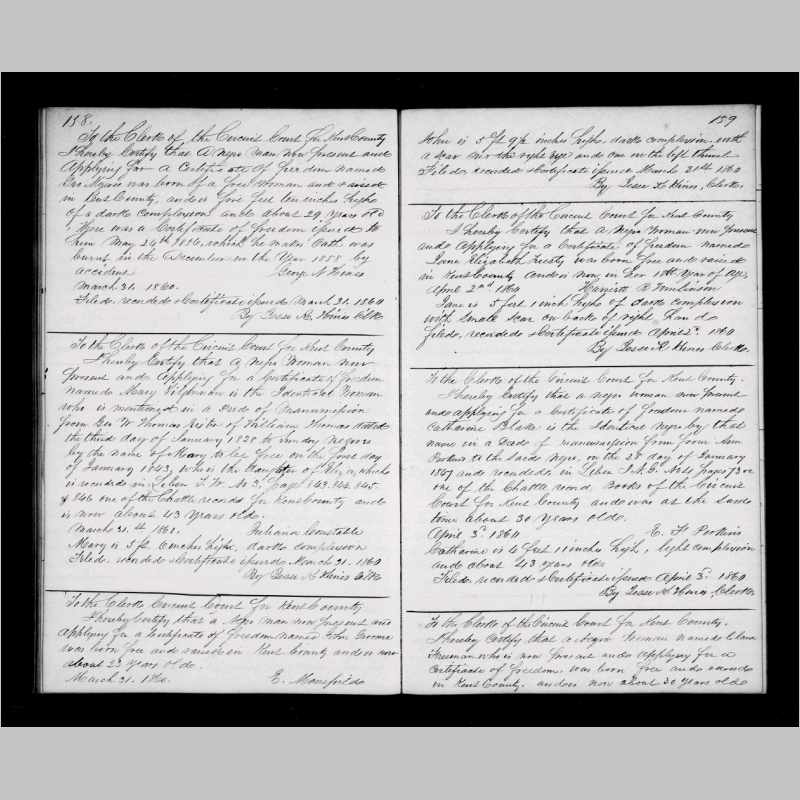 158.
To the Clerk of the Circuit Court for Kent County
I hereby Certify that A negro man now present and
Applying for a Certificate of freedom named
Geo Myers was born of a free Woman and raised
in Kent County, and is five feet ten inches high
of a dark Complexion and about 29 years old
There was a Certificate of freedom issued to
him May 24th 1850, which he makes Oath was
burnt in the December in the year 1858 by
accident George N Hines
March 31. 1860.
Filed, recorded & Certificate issued March 31. 1860
By Jesse K. Hines Clk
To the Clerk of the Circuit Court for Kent County
I hereby Certify that A Negro Woman now
present and Applying for a Certificate of freedom
named Mary is the Identical Woman
who is mentioned in a Deed of Manumission
from Geo W Thomas of William Thomas dated
the third day of January 1828 to sundry negroes
by the name of Mary to be free on the first day
of January 1843, who is the daughter of which
is recorded in Liber T. W. No 3, page 843. 844. 845.
& 846 one of the Chattle records for Kent County and
is now about 43 years old.
March 31.st 1860. Juliana Constable
Mary is 5 ft. 6 inches high, dark complexion
Filed. recorded & Certificate issued March 31. 1860
By Jesse K Hines Clk
To the Clerk Circuit Court for Kent County
I hereby Certify that a Negro man now present and
Applying for a Certificate of freedom named John
was born free and raised in Kent County and is now
about 22 years old.
March 31. 1860. E. Mansfield
159
John is 5 ft 9½ inches high, dark complexion with
a scar near the right eye and one on the left thumb
Filed, recorded & Certificate issued March 31st 1860
By Jesse K Hines, Clerk
To the Clerk of the Circuit Court for Kent County
I hereby Certify that a Negro Woman now present
and Applying for a Certificate of freedom named
Jane Elizabeth was born free and raised
in Kent County and is now in her year of Age
April 2nd 1860 Harriett R Tomlinson
Jane is 5 feet 1 inch high of dark complexion
with small scar on back of right hand
Filed, recorded & Certificate issued April 2d 1860
By Jesse K Hines Clerk.
To the Clerk of the Circuit Court for Kent County.
I hereby Certify that a negro woman now present
and applying for a Certificate of freedom named
Catharine Blake is the Identical negro by that
name in a Deed of manumission from Ann
Perkins to the said Negro, on the 28 day of January
1847 and recorded in Liber J. N. G. No
one of the Chattle record Books of the Circuit
Court for Kent County and was at the said
time about 30 years old.
April 3d 1860 E. F Perkins
Catharine is 4 feet 11 inches high, light complexion
and about 43 years old
Filed. recorded & Certificate issued April 3d 1860
By Jesse K Hines, Clerk
To the Clerk of the Circuit Court for Kent County.
I hereby Certify that a Negro Woman named
Freeman who is now present and applying for a
Certificate of freedom was born free and raised
in Kent County. and is now about 30 years old